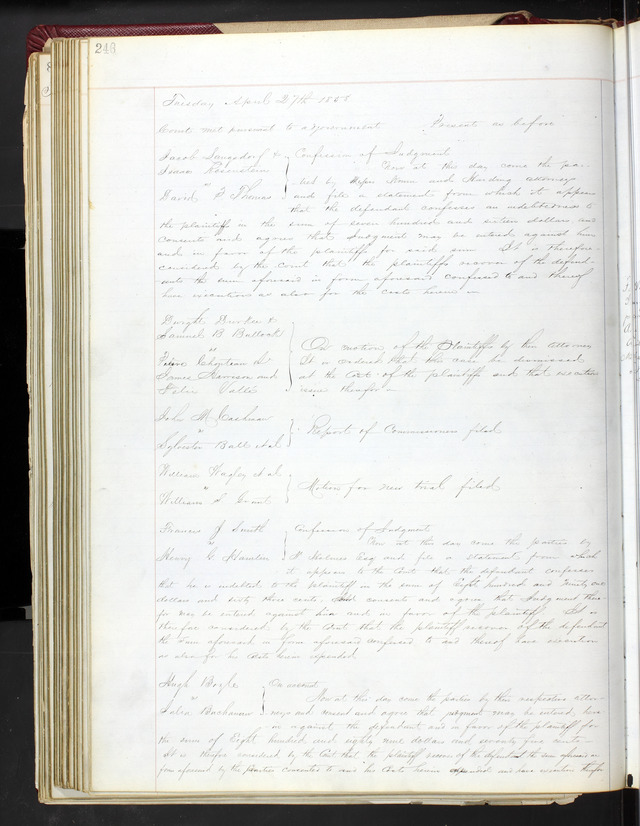 246
Tuesday April 27th 1858
Court met pursuant to adjournment Present as before
Jacob Langsdorf & Confession of Judgment
Isaac Now at this day come the par-
" ties by Messrs and Harding attorneys
David F Thomas and file a statement from which it appears
that the defendant confesses an indebtedness to
the plaintiffs in the sum of seven hundred and sixteen dollars and
consents and agrees that Judgment may be entered against him
and in favor of the plaintiffs for said sum. It is therefore
considered by the Court that the plaintiffs recover of the defend-
ants the sum aforesaid in form aforesaid confessed to and thereof
have execution as also for the costs herein
Dwight Durkee &
Samuel B Bullock
vs On motion of the Plaintiffs by their attorney
It is ordered that this case be dismissed
James Harrison and at the Cost of the plaintiffs and that execution
Felix Valle issue therefor
John M
" Report of Commissioners filed
Sylvester Ball et al
William et al
" Motion for new trial filed
William S Grant
Francis J Smith Confession of Judgment
" Now at this day come the parties by
Henry G Holmes Esq and file a statement from which
it appears to the Court that the defendant confesses
that he is indebted to the plaintiff in the sum of Eight hundred and Ninety one
dollars and sixty three cents, and consents and agrees that Judgment there-
for may be entered against him and in favor of the plaintiff. It is
therefore considered by the Court that the plaintiff recover of the defendant
the sum aforesaid in form aforesaid confessed to and thereof have execution
as also for his costs herein expended
Hugh Boyle On account
" Now at this day come the parties by their respective attor-
Buchanan neys and consent and agree that judgment may be entered here
in against the defendant and in favor of the plaintiff for
the sum of Eight hundred and eighty nine dollars and seventy five cents.
It is therefore considered by the Court that the plaintiff recover of the defendant the sum aforesaid in
form aforesaid by the parties consented to and his Costs herein expended and have execution therefor